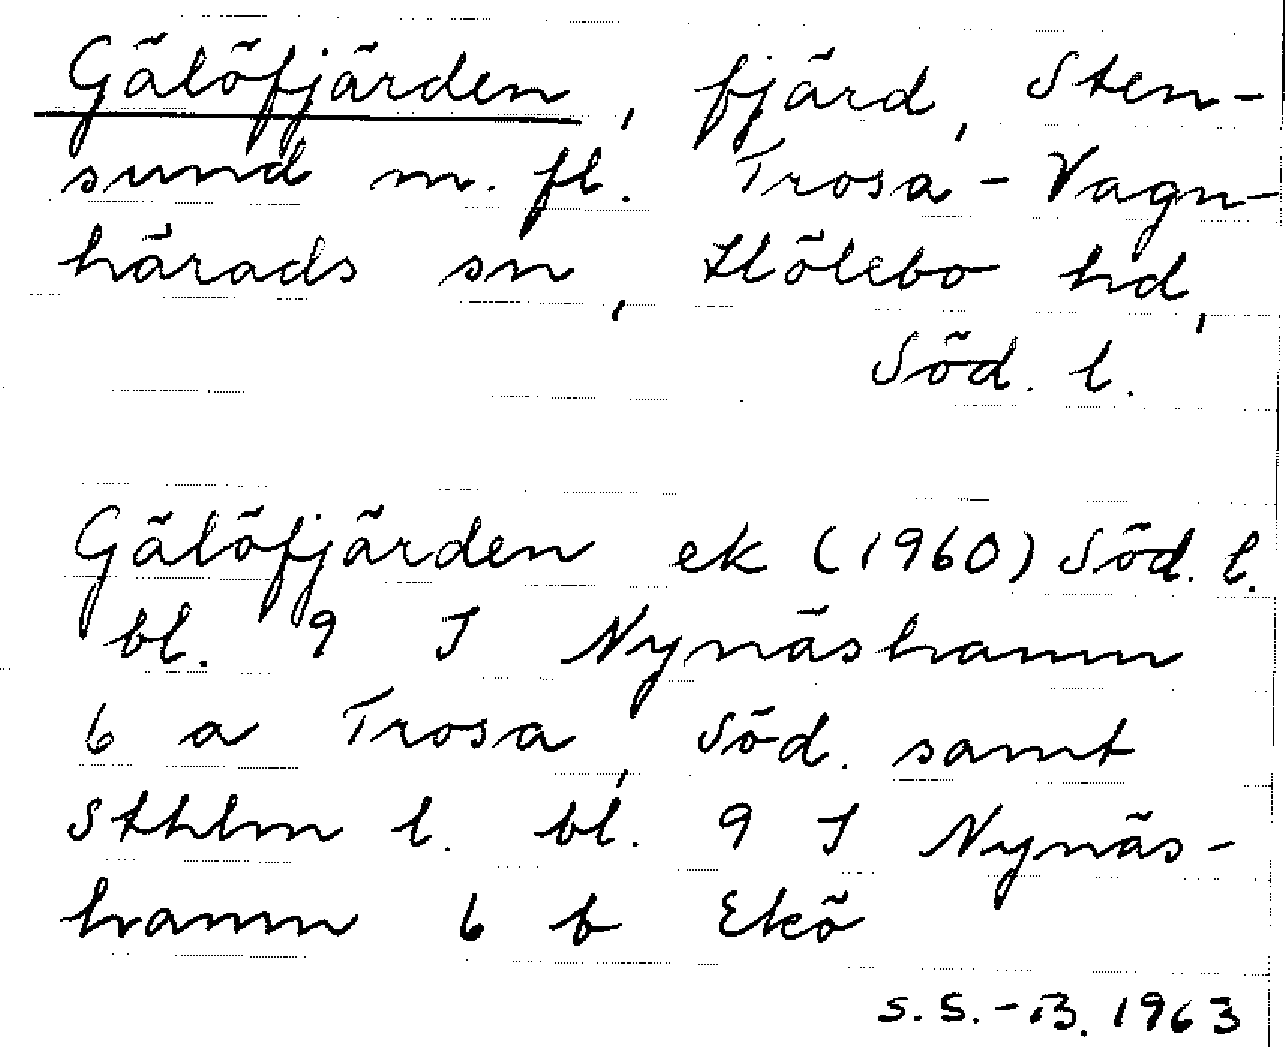 Gälöfjärden, fjärd, Sten-
sund m. fl. Trosa-Vagn-
härads sn, Hölebo hd,
Söd. l.
Gälöfjärden ek (1960) Söd. l.
bl. 9 I Nynäshamn
6 a Trosa, Söd. samt
Sthlm l. bl. 9 I Nynäs-
hamn 6 b Ekö
S.S.-B. 1963